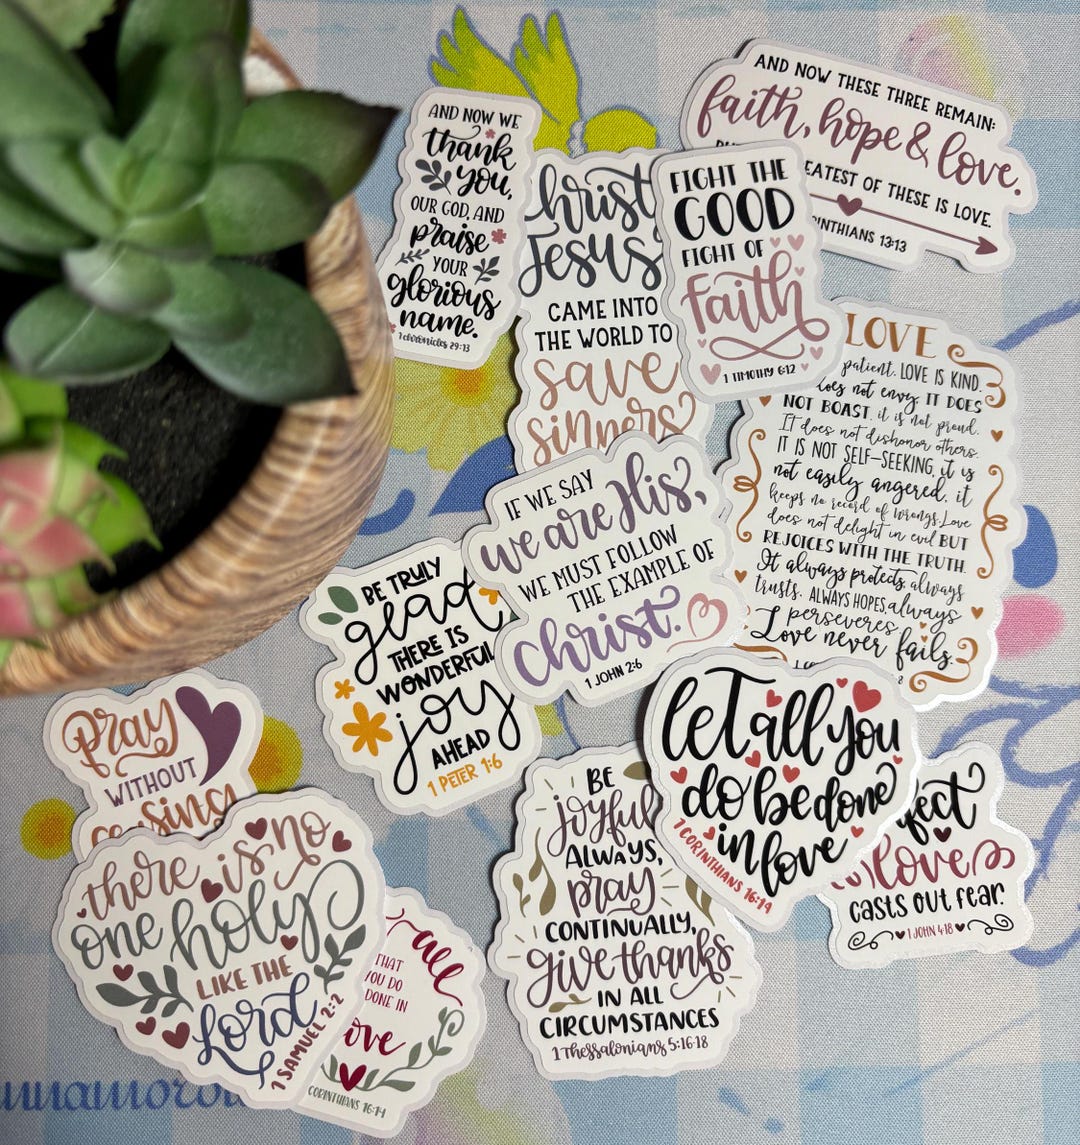 AND NOW WE
thank
you,
OUR GOD, AND
praise
YOUR
glorious
name.
1 chronicles 29:13
christ
Jesus
CAME INTO
THE WORLD TO
save
sinners
FIGHT THE
GOOD
FIGHT OF
Faith
1 TIMOTHY 6:12
AND NOW THESE THREE REMAIN:
faith, hope & love.
EATEST OF THESE IS LOVE.
INTHIANS 13:13
LOVE
patient. LOVE IS KIND.
does not envy. IT DOES
NOT BOAST. it is not proud.
It does not dishonor others.
IT IS NOT SELF-SEEKING, it is
not easily angered, it
keeps no record of wrongs. Love
does not delight in evil BUT
REJOICES WITH THE TRUTH.
It always protects, always
trusts, ALWAYS HOPES, always
perseveres
Love never fails.
8
IF WE SAY
we are His,
WE MUST FOLLOW
THE EXAMPLE OF
Christ.
1 JOHN 2:6
BE TRULY
glad
THERE IS
WONDERFUL
joy
AHEAD
1 PETER 1:6
pray
WITHOUT
ceasing
let all you
do be done
in love
1 CORINTHIANS 16:14
fect
love
casts out fear.
1 JOHN 4:18
BE
joyful
ALWAYS,
pray
CONTINUALLY,
give thanks
IN ALL
CIRCUMSTANCES
1 Thessalonians 5:16-18
there is no
one holy
LIKE THE
Lord
1 SAMUEL 2:2
all
THAT
YOU DO
DONE IN
love
CORINTHIANS 16:14
nnamoro